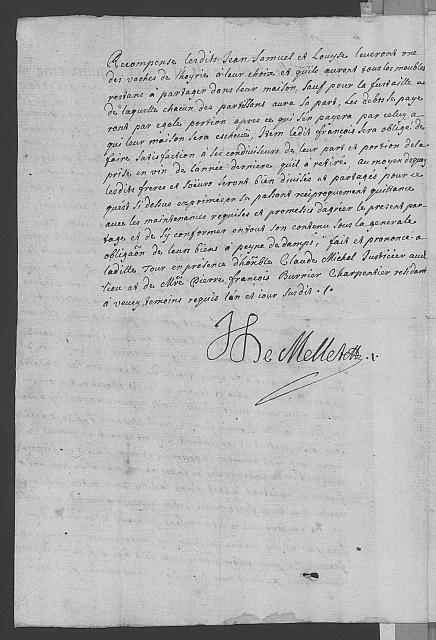 Recompense lesdits Jean, Samuel et Louyse leveront une
des vaches de l'hoyrie à leur choix et quils auront tous les meubles
restans a partager dans leur maison, sauf pour la fustaille a
de laquelle chacun des partissans aura sa part, Les debts se paye
ront par egale portion apres ce qui s'en payera par celuy a
qui leur maison sera escheue, Item ledit françois sera obligé de
faire satisfaction à ses condiviseurs de leur part et portion de la
prise en vin de l'année derniere quil à retiré, au moyen dequoy
lesdits freres et soeurs seront bien divisés et partagés pour ce
quest si dessus exprimé, en se passant reciproquement quittance
avec les maintenances requises et promettes d'agréer le present par
tage et de s'y conformer en tout son contenu sous la generale
obliga͠on de leurs biens à peyne de damps, fait et prononcé a
ladite Tour en présence d'hon͠ble Claude Michel Justicier aud
lieu et de M͠re Pierre françois Burnier Charpentier residant
à vevey, temoins requis l'an et jour susdit.
De Mellet